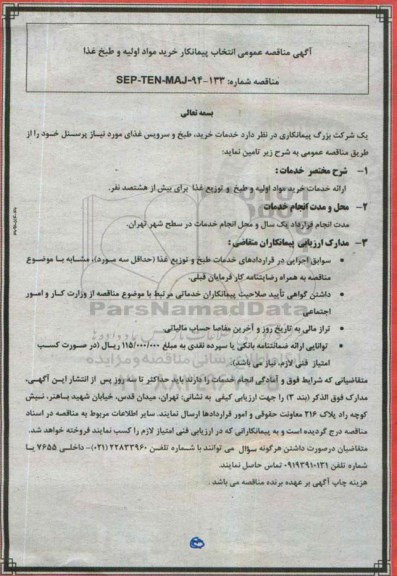 آگهی مناقصه عمومی انتخاب پیمانکار خرید مواد اولیه و طبخ غذا
مناقصه شماره: SEP-TEN-MAJ-94-133
بسمه تعالی
یک شرکت بزرگ پیمانکاری در نظر دارد خدمات خرید، طبخ و سرویس غذای مورد نیاز پرسنل خود را از
طریق مناقصه عمومی به شرح زیر تامین نماید:
۱- شرح مختصر خدمات:
ارائه خدمات خرید مواد اولیه و طبخ و توزیع غذا برای بیش از هشتصد نفر.
۲- محل و مدت انجام خدمات
مدت انجام قرارداد یک سال و محل انجام خدمات در سطح شهر تهران.
۳- مدارک ارزیابی پیمانکاران متقاضی:
• سوابق اجرایی در قراردادهای خدمات طبخ و توزیع غذا (حداقل سه مورد)، مشابه با موضوع
مناقصه به همراه رضایتنامه کار فرمایان قبلی.
• داشتن گواهی تأیید صلاحیت پیمانکاران خدماتی مرتبط با موضوع مناقصه از وزارت کار و امور
اجتماعی
• تراز مالی به تاریخ روز و آخرین مفاصا حساب مالیاتی
• توانایی ارائه ضمانتنامه بانکی یا سپرده نقدی به مبلغ ۱۱۵/۰۰۰/۰۰۰ ریال (در صورت کسب
امتیاز فنی لازم، نیاز می باشد).
متقاضیانی که شرایط فوق و آمادگی انجام خدمات را دارند باید حداکثر تا سه روز پس از انتشار این آگهی،
مدارک فوق الذکر (بند ۳) را جهت ارزیابی کیفی به نشانی: تهران، میدان قدس، خیابان شهید باهنر، نبش
کوچه راد پلاک ۲۱۶ معاونت حقوقی و امور قراردادها ارسال نمایند. سایر اطلاعات مربوط به مناقصه در اسناد
مناقصه درج گردیده است و به پیمانکارانی که در ارزیابی فنی امتیاز لازم را کسب نمایند فروخته خواهد شد.
متقاضیان درصورت داشتن هرگونه سؤال می توانند با شماره تلفن ۲۲۸۳۳۹۶۰ (۰۲۱)- داخلی ۷۶۵۵ یا
شماره تلفن ۰۹۱۹۳۹۱۰۱۳۱ تماس حاصل نمایند.
هزینه چاپ آگهی بر عهده برنده مناقصه می باشد.
ParsNamadData